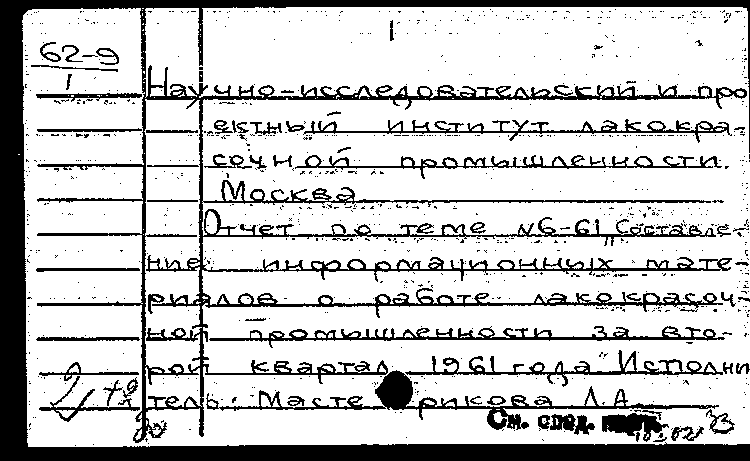 62-9
1
1
Научно-исследовательский и про
ектный институт лакокра-
сочной промышленности.
Москва
Отчет по теме №6-61 „Составле-
ние информационных мате-
риалов о работе лакокрасоч-
ной промышленности за вто-
рой квартал 1961 года" Исполни
тель: Мастерикова Л.А.
См. след.